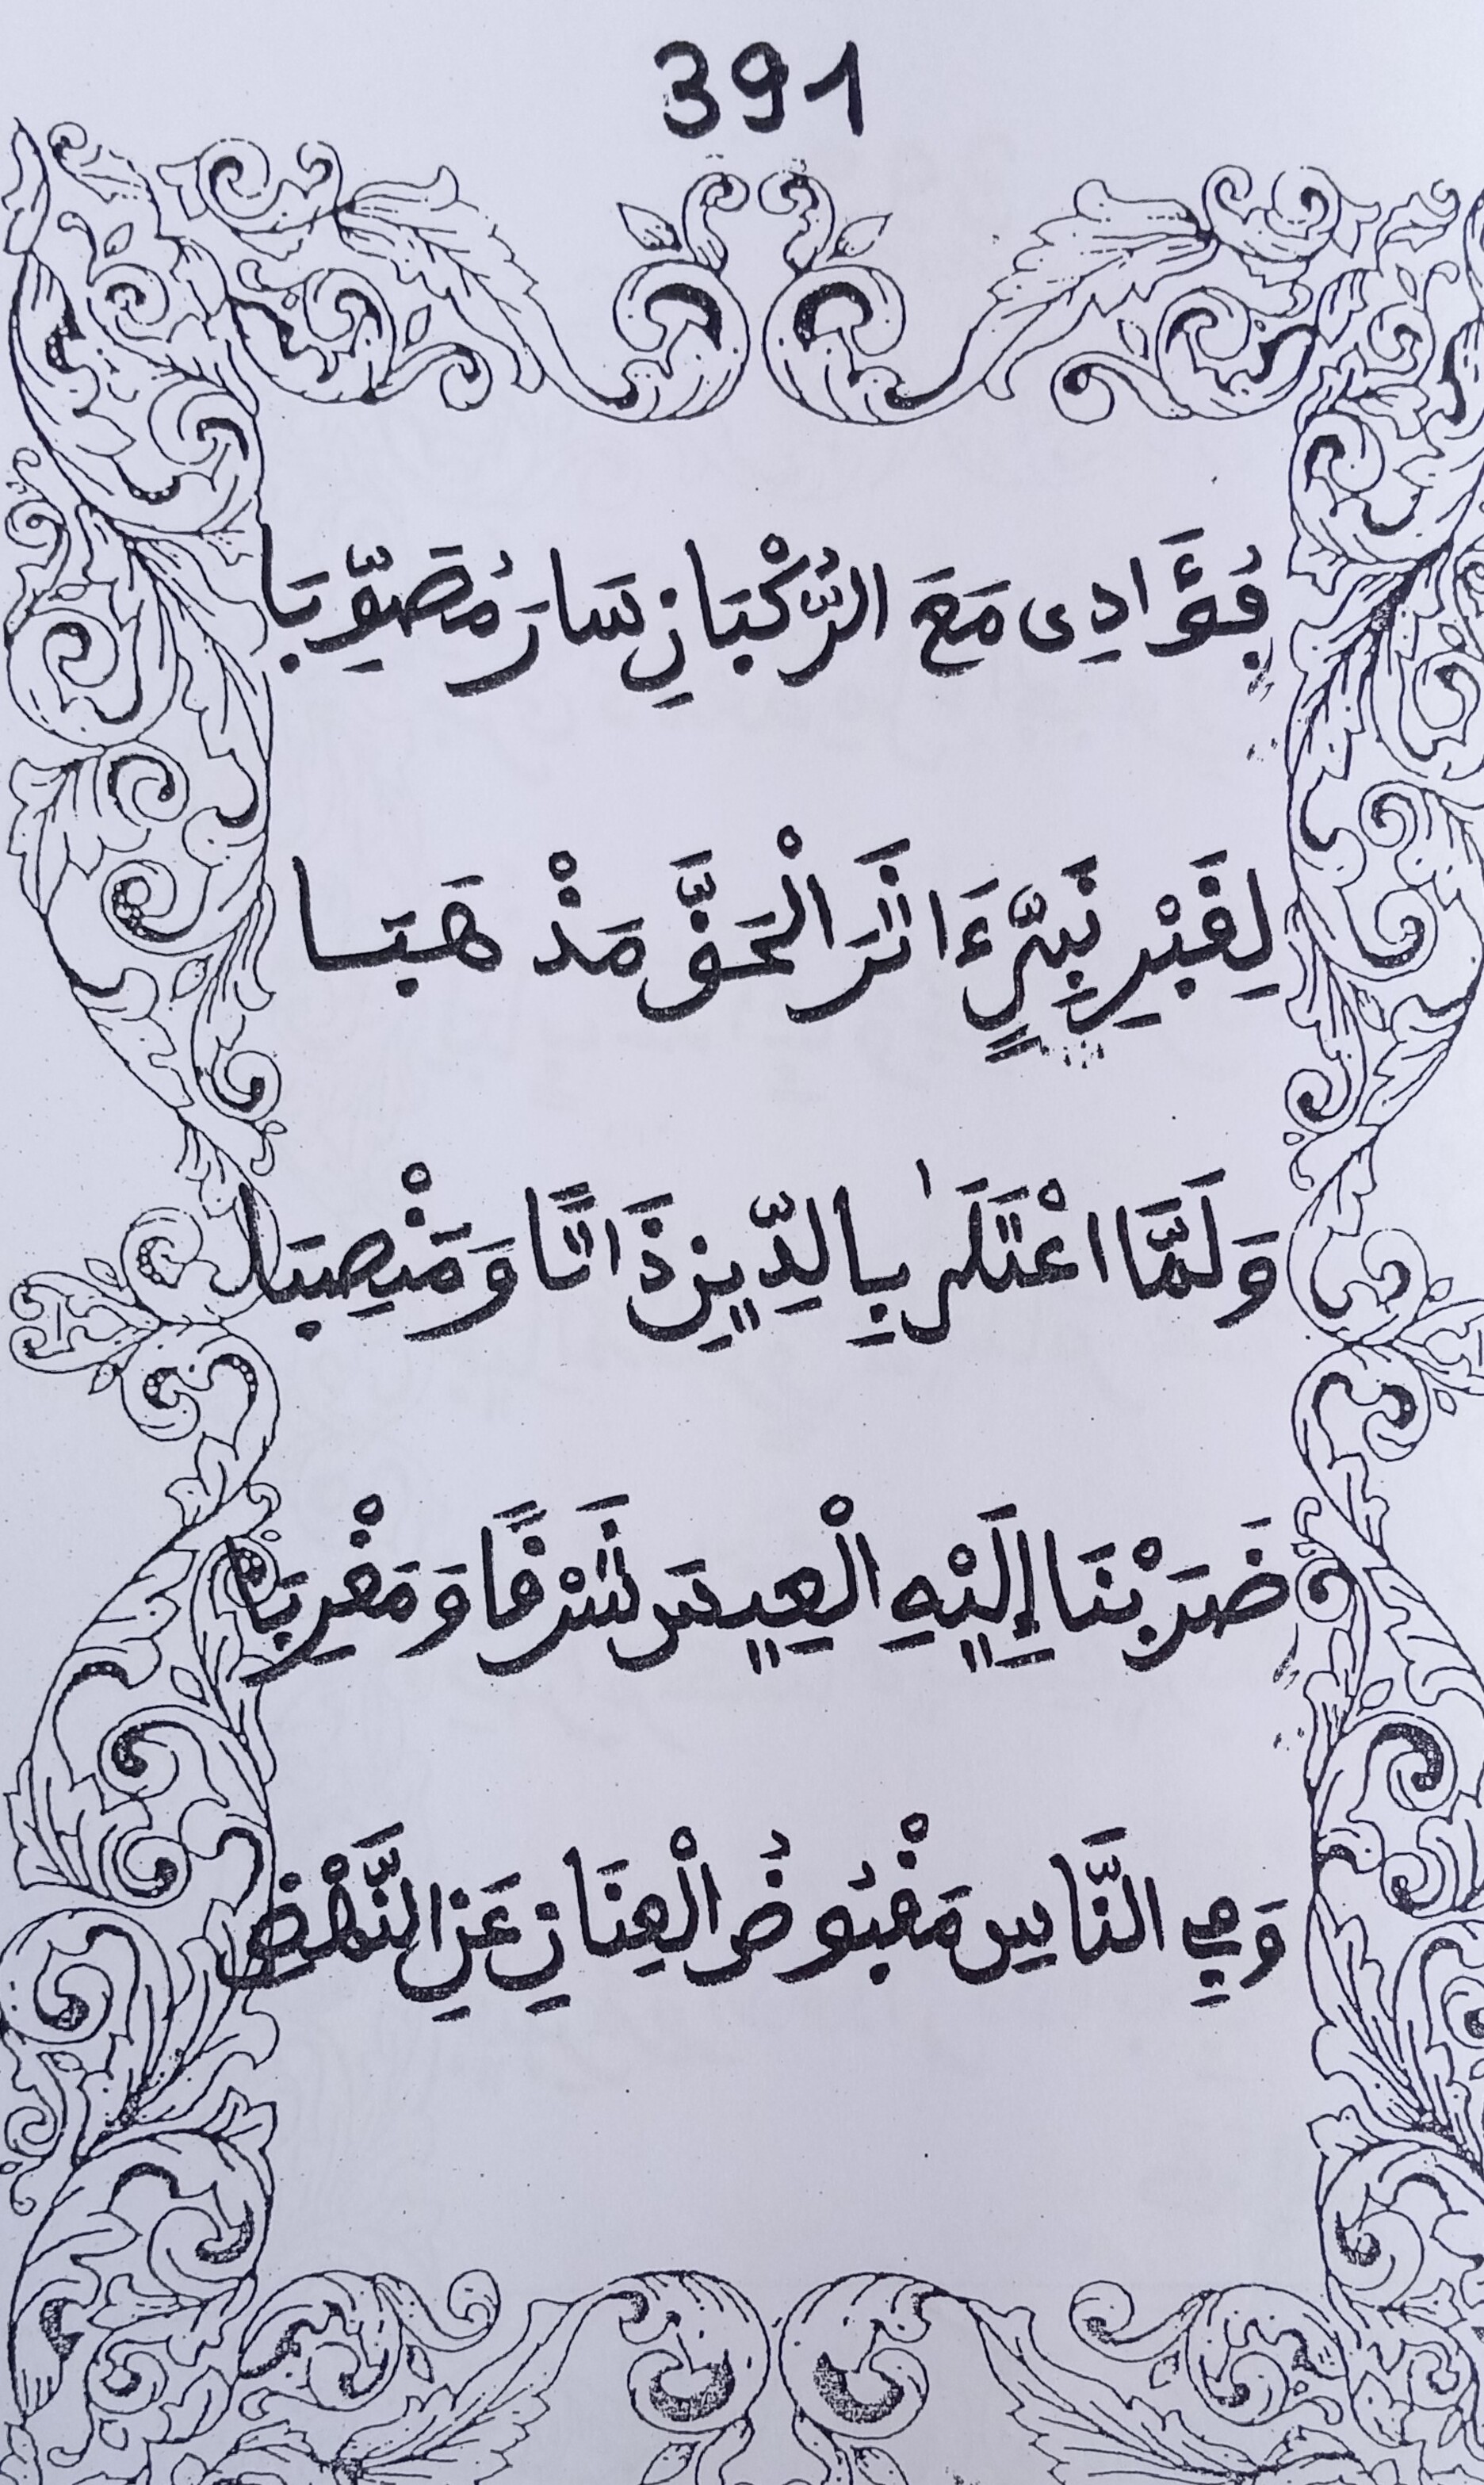 391
فُؤَادِى مَعَ الرُّكْبَانِ سَارَ مُصَوِّبَا
لِقَبْرِ نَبِىٍّ ءَاثَرَ الْحَقَّ مَذْهَبَا
وَلَمَّا اعْتَلَىٰ بِالدِّينِ ذَاتًا وَمَنْصِبَا
ضَرَبْنَا إِلَيْهِ الْعِيسَ شَرْقًا وَمَغْرِبَا
وَفِي النَّاسِ مَقْبُوضُ الْعِنَانِ عَنِ النَّهْضِ